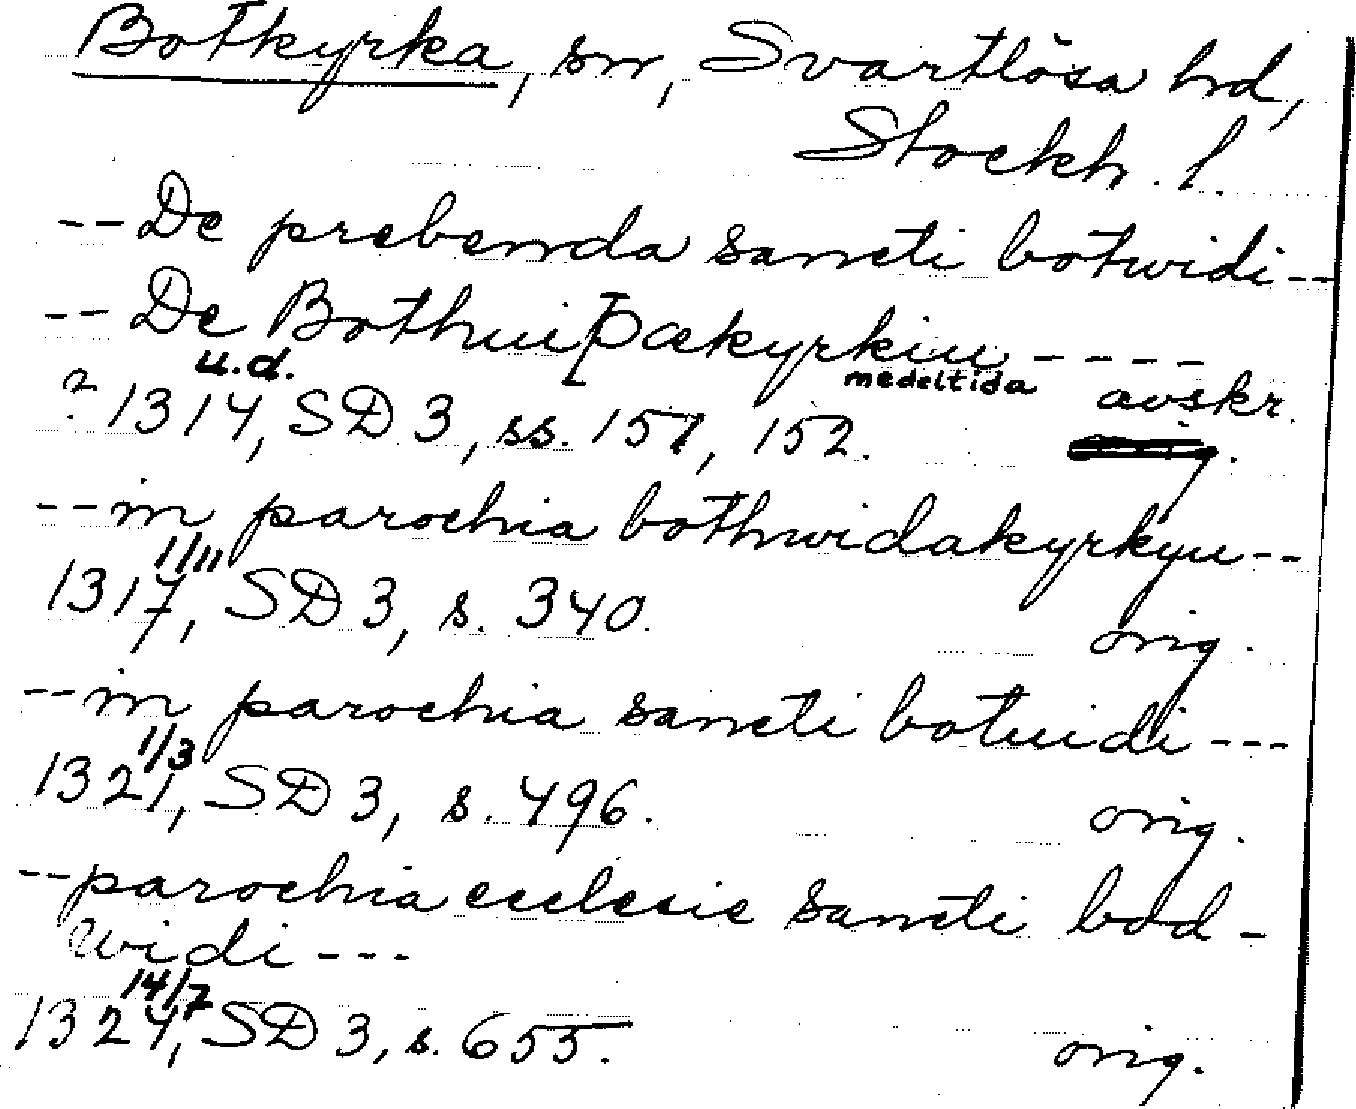 Botkyrka, sn, Svartlösa hd,
Stockh. l.
--De prebenda sancti botwidi--
--De Bothui[þækyrkiu-----
u.d. medeltida
? 1314, SD 3, ss. 151, 152. avskr.
--in parochia bothwidakyrkyu--
1/11
1317, SD 3, s. 340. orig.
--in parochia sancti botuidi---
1/3
1321, SD 3, s. 496. orig.
--parochia ecclesie sancti bod-
widi---
14/7
1324, SD 3, s. 655. orig.